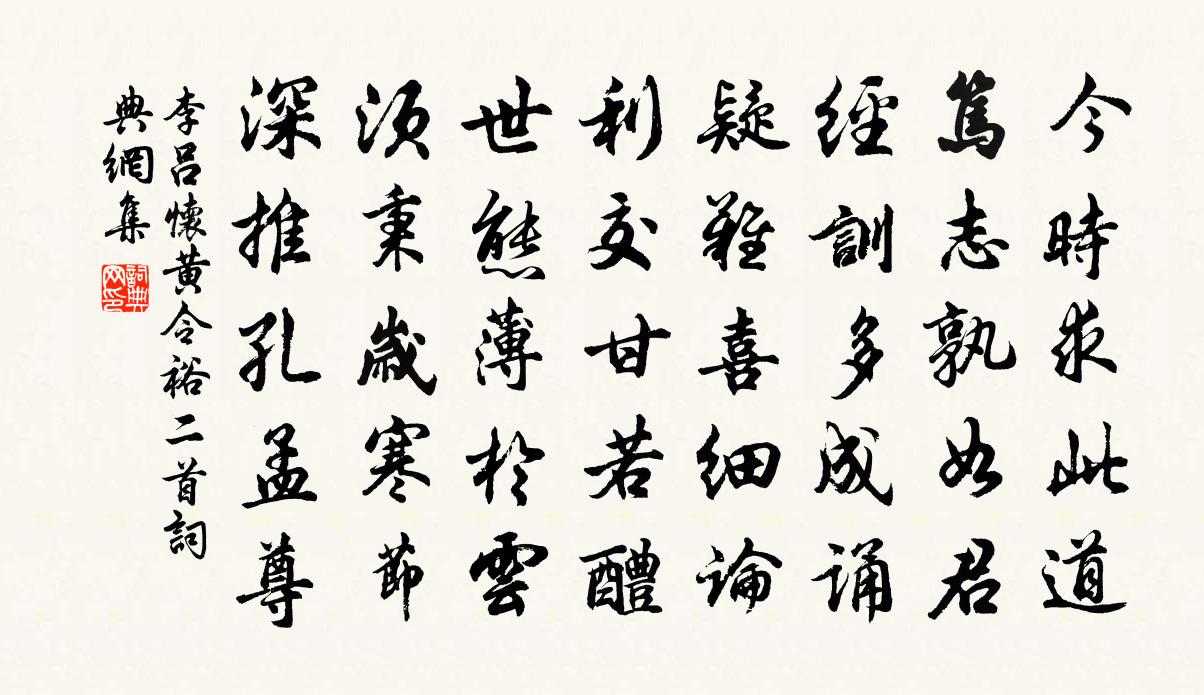 今時求此道
篤志孰如君
經訓多成誦
疑難喜細論
利交甘若醴
世態薄於雲
須秉歲寒節
深推孔孟尊
李呂懷黃令裕二首詞
典網集
詞典
网印